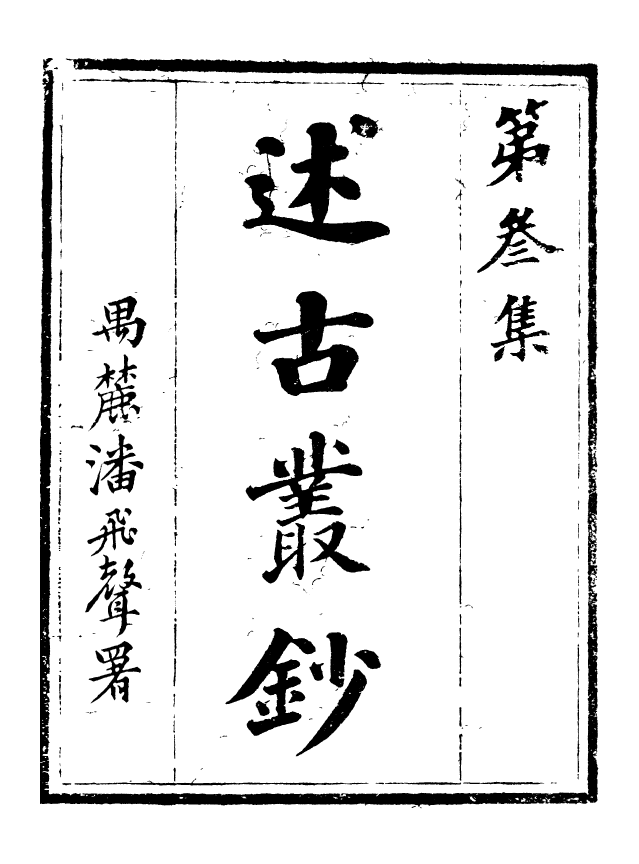 第叄集
述古叢鈔
禺麓潘飛聲署